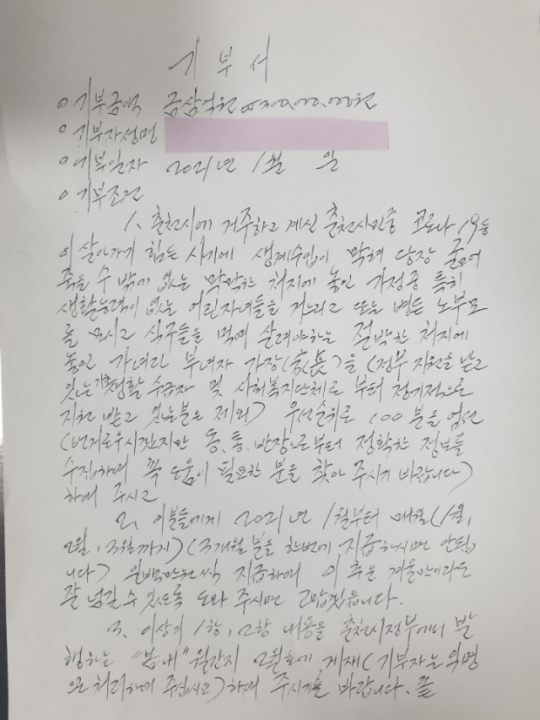 기부서
○ 기부금액 금삼억원 ₩300,000,000원
○ 기부자성명
○ 기부일자 2021년 1월 일
○ 기부조건
1. 춘천시에 거주하고 계신 춘천시민중 코로나 19등
이 살아가기 힘든 시기에 생계수입이 막혀 당장 굶어
죽을 수 밖에 없는 막막한 처지에 놓인 가정중 특히
생활능력이 없는 어린자녀들을 거느리고 또는 병든 노부모
를 모시고 식구들을 먹여 살려야하는 절박한 처지에
놓인 가녀린 부녀자 가장(家長)을 (정부 지원을 받고
있는 기초생활 수급자 및 사회복지단체로 부터 정기적으로
지원 받고 있는분은 제외) 우선순위로 100분을 엄선
(번거로우시겠지만 동, 통, 반장으로부터 정확한 정보를
수집하여 꼭 도움이 필요한 분을 찾아 주시기 바랍니다)
하여 주시고
2. 이분들에게 2021년 1월부터 매월(1월,
2월, 3월까지)(3개월 분을 한번에 지급하시면 안됩
니다) 일백만원씩 지급하여 이 추운 겨울만이라도
잘 넘길 수 있도록 도와 주시면 고맙겠읍니다.
3. 이상의 1항, 2항 내용을 춘천시정부에서 발
행하는 "봄내" 월간지 2월호에 게재(기부자는 익명
으로 처리하여 주십시오)하여 주시기를 바랍니다. 끝